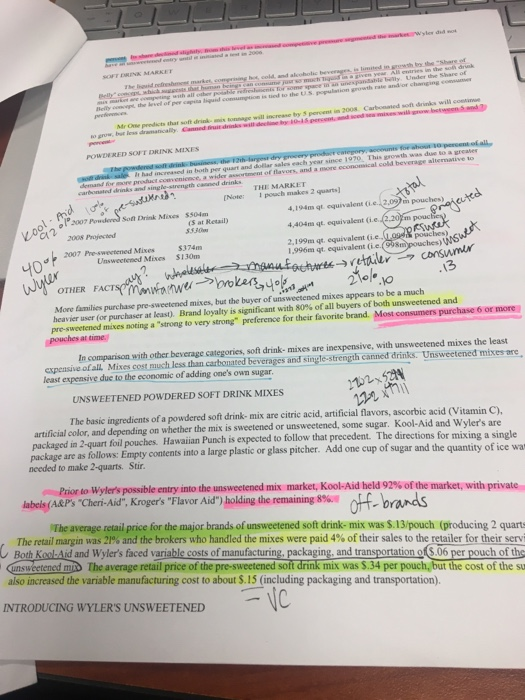 Wyler did not
SOFT DRINK MARKET
The liquid refreshment market, comprising hot, cold, and alcoholic beverages, is limited in growth by the "Share of
Belly" concept, which suggests that human beings can consume just so much liquid in a given year. All entries in the soft drink
mix market are competing with all other possible refreshments for some space in an belly. Under the Share of
Belly concept, the level of per capita liquid consumption is tied to the U.S. population growth rate and/or changing consumer
preferences.
Mr One predicts that soft drink- mix tonnage will increase by 5 percent in 2008. Carbonated soft drinks will continue
to grow, but less dramatically. Canned fruit drinks will decline by 10-15 percent, and iced tea mixes will grow between 5 and 7
percent.
POWDERED SOFT DRINK MIXES
The powdered soft drink- business, the 12th-largest dry grocery product category, accounts for about 10 percent of all
soft drink sales. It had increased in both per quart and dollar sales each year since 1970. This growth was due to a greater
demand for more product convenience, a wider assortment of flavors, and a more economical cold beverage alternative to
carbonated drinks and single-strength canned drinks.
THE MARKET
[Note: 1 pouch makes 2 quarts]
total
Kool-Aid
92%
10%
or pre-sweetened?
2007 Powdered Soft Drink Mixes $504m 4,194m qt. equivalent (i.e. 2,097m pouches)
($ at Retail)
projected
2008 Projected $530m 4,404m qt. equivalent (i.e. 2,202m pouches)
presweet
40%
Wyler
2007 Pre-sweetened Mixes $374m 2,199m qt. equivalent (i.e. 1,099m pouches)
Unsweetened Mixes $130m 1,996m qt. equivalent (i.e. 998m pouches) unsweet
wholesaler → manufacturer → retailer → consumer
OTHER FACTS manufacturer → brokers, 4% 21% .10 .13
More families purchase pre-sweetened mixes, but the buyer of unsweetened mixes appears to be a much
heavier user (or purchaser at least). Brand loyalty is significant with 80% of all buyers of both unsweetened and
pre-sweetened mixes noting a "strong to very strong" preference for their favorite brand. Most consumers purchase 6 or more
pouches at time
In comparison with other beverage categories, soft drink- mixes are inexpensive, with unsweetened mixes the least
expensive of all. Mixes cost much less than carbonated beverages and single-strength canned drinks. Unsweetened mixes are
least expensive due to the economic of adding one's own sugar.
UNSWEETENED POWDERED SOFT DRINK MIXES
The basic ingredients of a powdered soft drink- mix are citric acid, artificial flavors, ascorbic acid (Vitamin C),
artificial color, and depending on whether the mix is sweetened or unsweetened, some sugar. Kool-Aid and Wyler's are
packaged in 2-quart foil pouches. Hawaiian Punch is expected to follow that precedent. The directions for mixing a single
package are as follows: Empty contents into a large plastic or glass pitcher. Add one cup of sugar and the quantity of ice wa
needed to make 2-quarts. Stir.
Prior to Wyler's possible entry into the unsweetened mix market, Kool-Aid held 92% of the market, with private
labels (A&P's "Cheri-Aid", Kroger's "Flavor Aid") holding the remaining 8%.
off-brands
The average retail price for the major brands of unsweetened soft drink- mix was $.13/pouch (producing 2 quarts
The retail margin was 21% and the brokers who handled the mixes were paid 4% of their sales to the retailer for their servi
Both Kool-Aid and Wyler's faced variable costs of manufacturing, packaging, and transportation of $.06 per pouch of the
unsweetened mix The average retail price of the pre-sweetened soft drink mix was $.34 per pouch, but the cost of the su
also increased the variable manufacturing cost to about $.15 (including packaging and transportation).
= VC
INTRODUCING WYLER'S UNSWEETENED